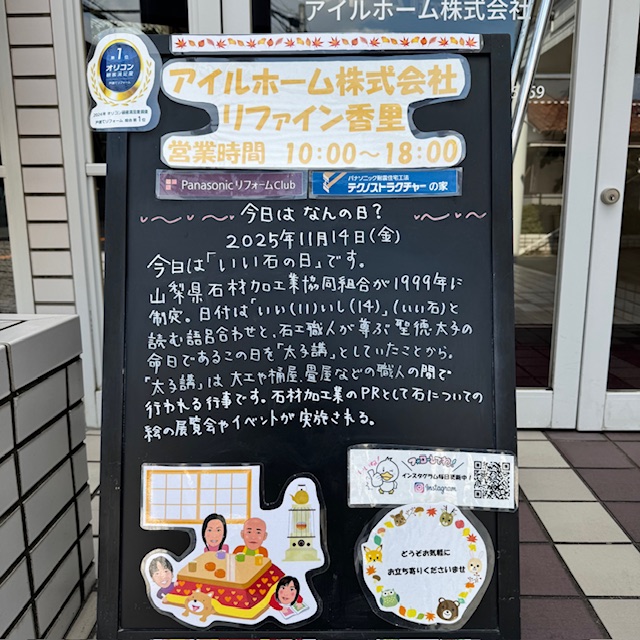 アイルホーム株式会社
第1位
オリコン
顧客満足度
2025年 オリコン顧客満足度調査
戸建てリフォーム 総合 第1位
アイルホーム株式会社
リファイン香里
営業時間 10:00〜18:00
Panasonic リフォーム Club
パナソニック耐震住宅工法
テクノストラクチャーの家
今日は なんの日?
2025年11月14日(金)
今日は「いい石の日」です。
山梨県石材加工業協同組合が1999年に
制定。日付は「いい(11)いし(14)」(いい石)と
読む語呂合わせと、石工職人が尊ぶ聖徳太子の
命日であるこの日を「太子講」としていたことから。
「太子講」は大工や桶屋、畳屋などの職人の間で
行われる行事です。石材加工業のPRとして石についての
絵の展覧会やイベントが実施される。
インスタグラム毎日更新中!
Instagram
どうぞお気軽に
お立ち寄りくださいませ